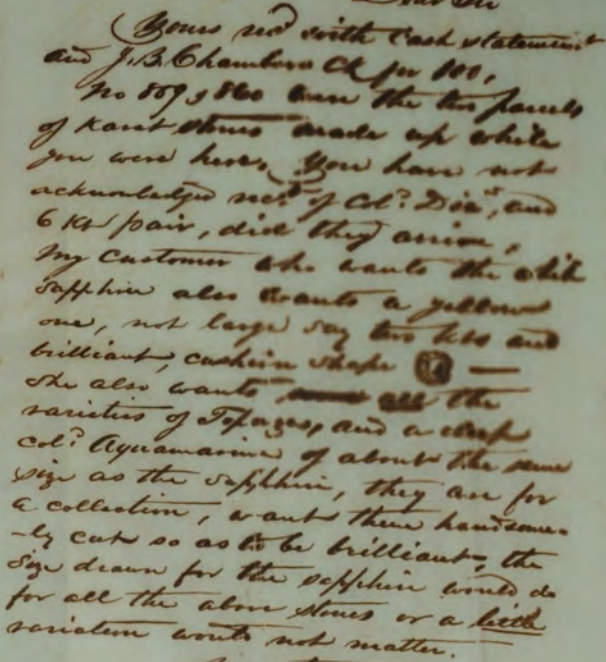 Dear Sir
Yours recd with Cash statement
and J. B. Chambers Ck for 100,
No 859 & 860 were the two parcels
of Karat stones made up while
you were here. You have not
acknowledged rect of Cold Diad, and
6 Kt pair, did they arrive,
My Customer who wants the white
Sapphire also wants a yellow
one, not large say two kts and
brilliant, cushion shape —
she also wants all the
varieties of Topazes, and a deep
cold Aquamarine of about the same
size as the sapphire, they are for
a collection, want them handsome-
-ly cut so as to be brilliant, the
size drawn for the sapphire would do
for all the above stones or a little
variation would not matter.